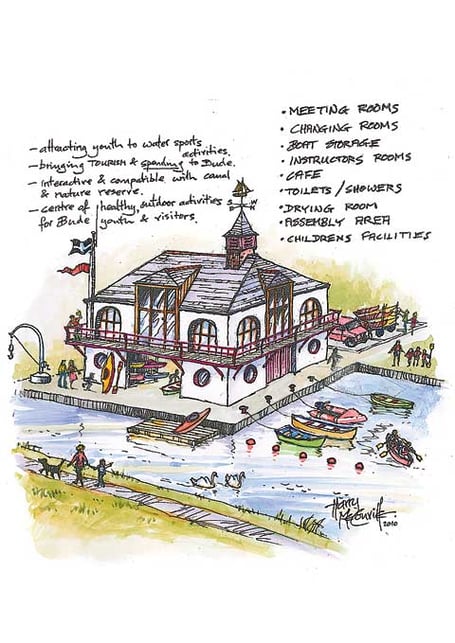 – attracting youth to water sports
activities.
– bringing TOURISM & spending to Bude.
– interactive & compatible with canal
& nature reserve.
– centre of healthy, outdoor activities
for Bude youth & visitors.
• MEETING ROOMS
• CHANGING ROOMS
• BOAT STORAGE
• INSTRUCTORS ROOMS
• CAFE
• TOILETS / SHOWERS
• DRYING ROOM
• ASSEMBLY AREA
• CHILDRENS FACILITIES
Harry
2010